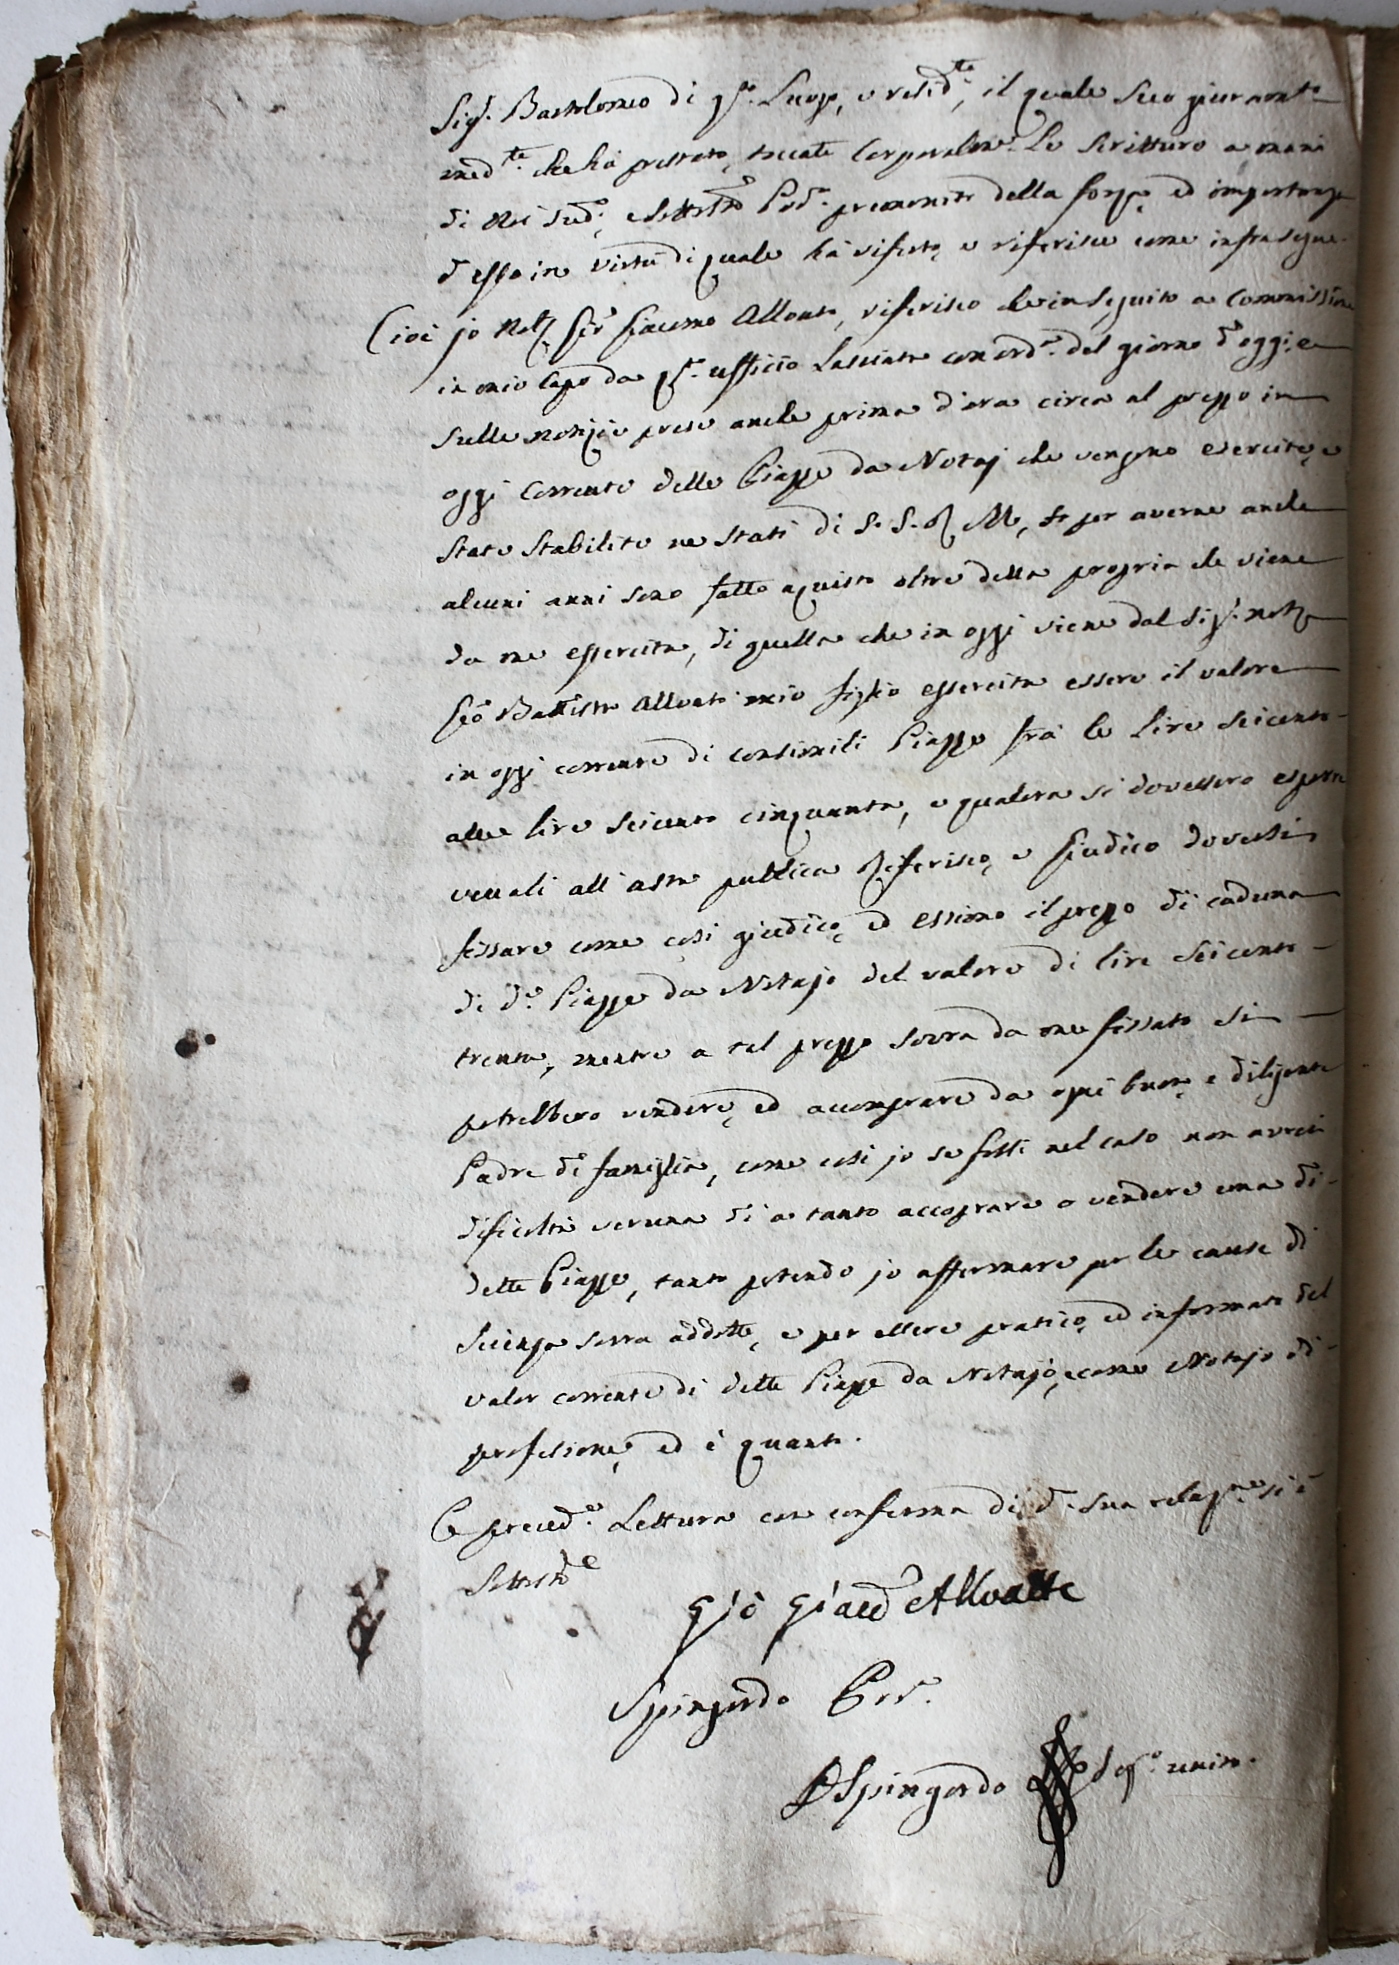 Sig.r Bartolomeo di q.to Luogo, e resid.te, il quale suo giuramento
med.te che há prestato, toccate Corporalm.e Le Scritture a mani
di Noi Sud.o, e Sottos.to Pod.à premonito della forza, ed importanza
d'esso in virtù di quale há riferto, e riferisce come infra segue.
Cioè jo Not.o Gio Giacomo Allvate, riferisco che in Seguito a Commissione
in mio Capo da q.to ufficio Lasciata con ord.e del giorno d'oggi, e
sulle notizie prese anche prima d'ora circa al prezzo in
oggi Corrente delle Piazze da Notaj che vengono esercite, e
state Stabilite ne Stati di S. S. R. M., e per averne anche
alcuni anni sono fatto aquisto oltre della propria che viene
da me essercita, di quella che in oggi viene dal Sig.r not.o
Gio Battista Allvate mio figlio essercita essere il valore
in oggi corrente di consimili Piazze frà le Lire Seicento
alle lire Seicento cinquanta, e qualora si dovessero esporre
venali all'asta publica Riferisco, e Giudico doversi
fissare come così giudico, ed estimo il prezzo di caduna
di d.e Piazze da Notajo del valore di lire Seicento
trenta, mentre a tal prezzo sovra da me fissato si
potrebbero vendere, ed accomprare da ogni buon, e diligente
Padre di famiglia, come così jo se fossi nel caso non avrei
dificoltà veruna di a tanto accoprare o vendere una di
dette Piazze, tanto potendo jo affermare per le cause di
Scienza sovra addotte, e per essere pratico, ed informato del
valor corrente di dette Piazze da Notajo, e come Notajo di
professione, ed è quanto.
E preced.e Lettura con conferma di d.a sua relaz.ne si è
Sottos.to
Gio Giac.o Allvatte
Spingardo Pod.à
Spingardo Seg.o unito.